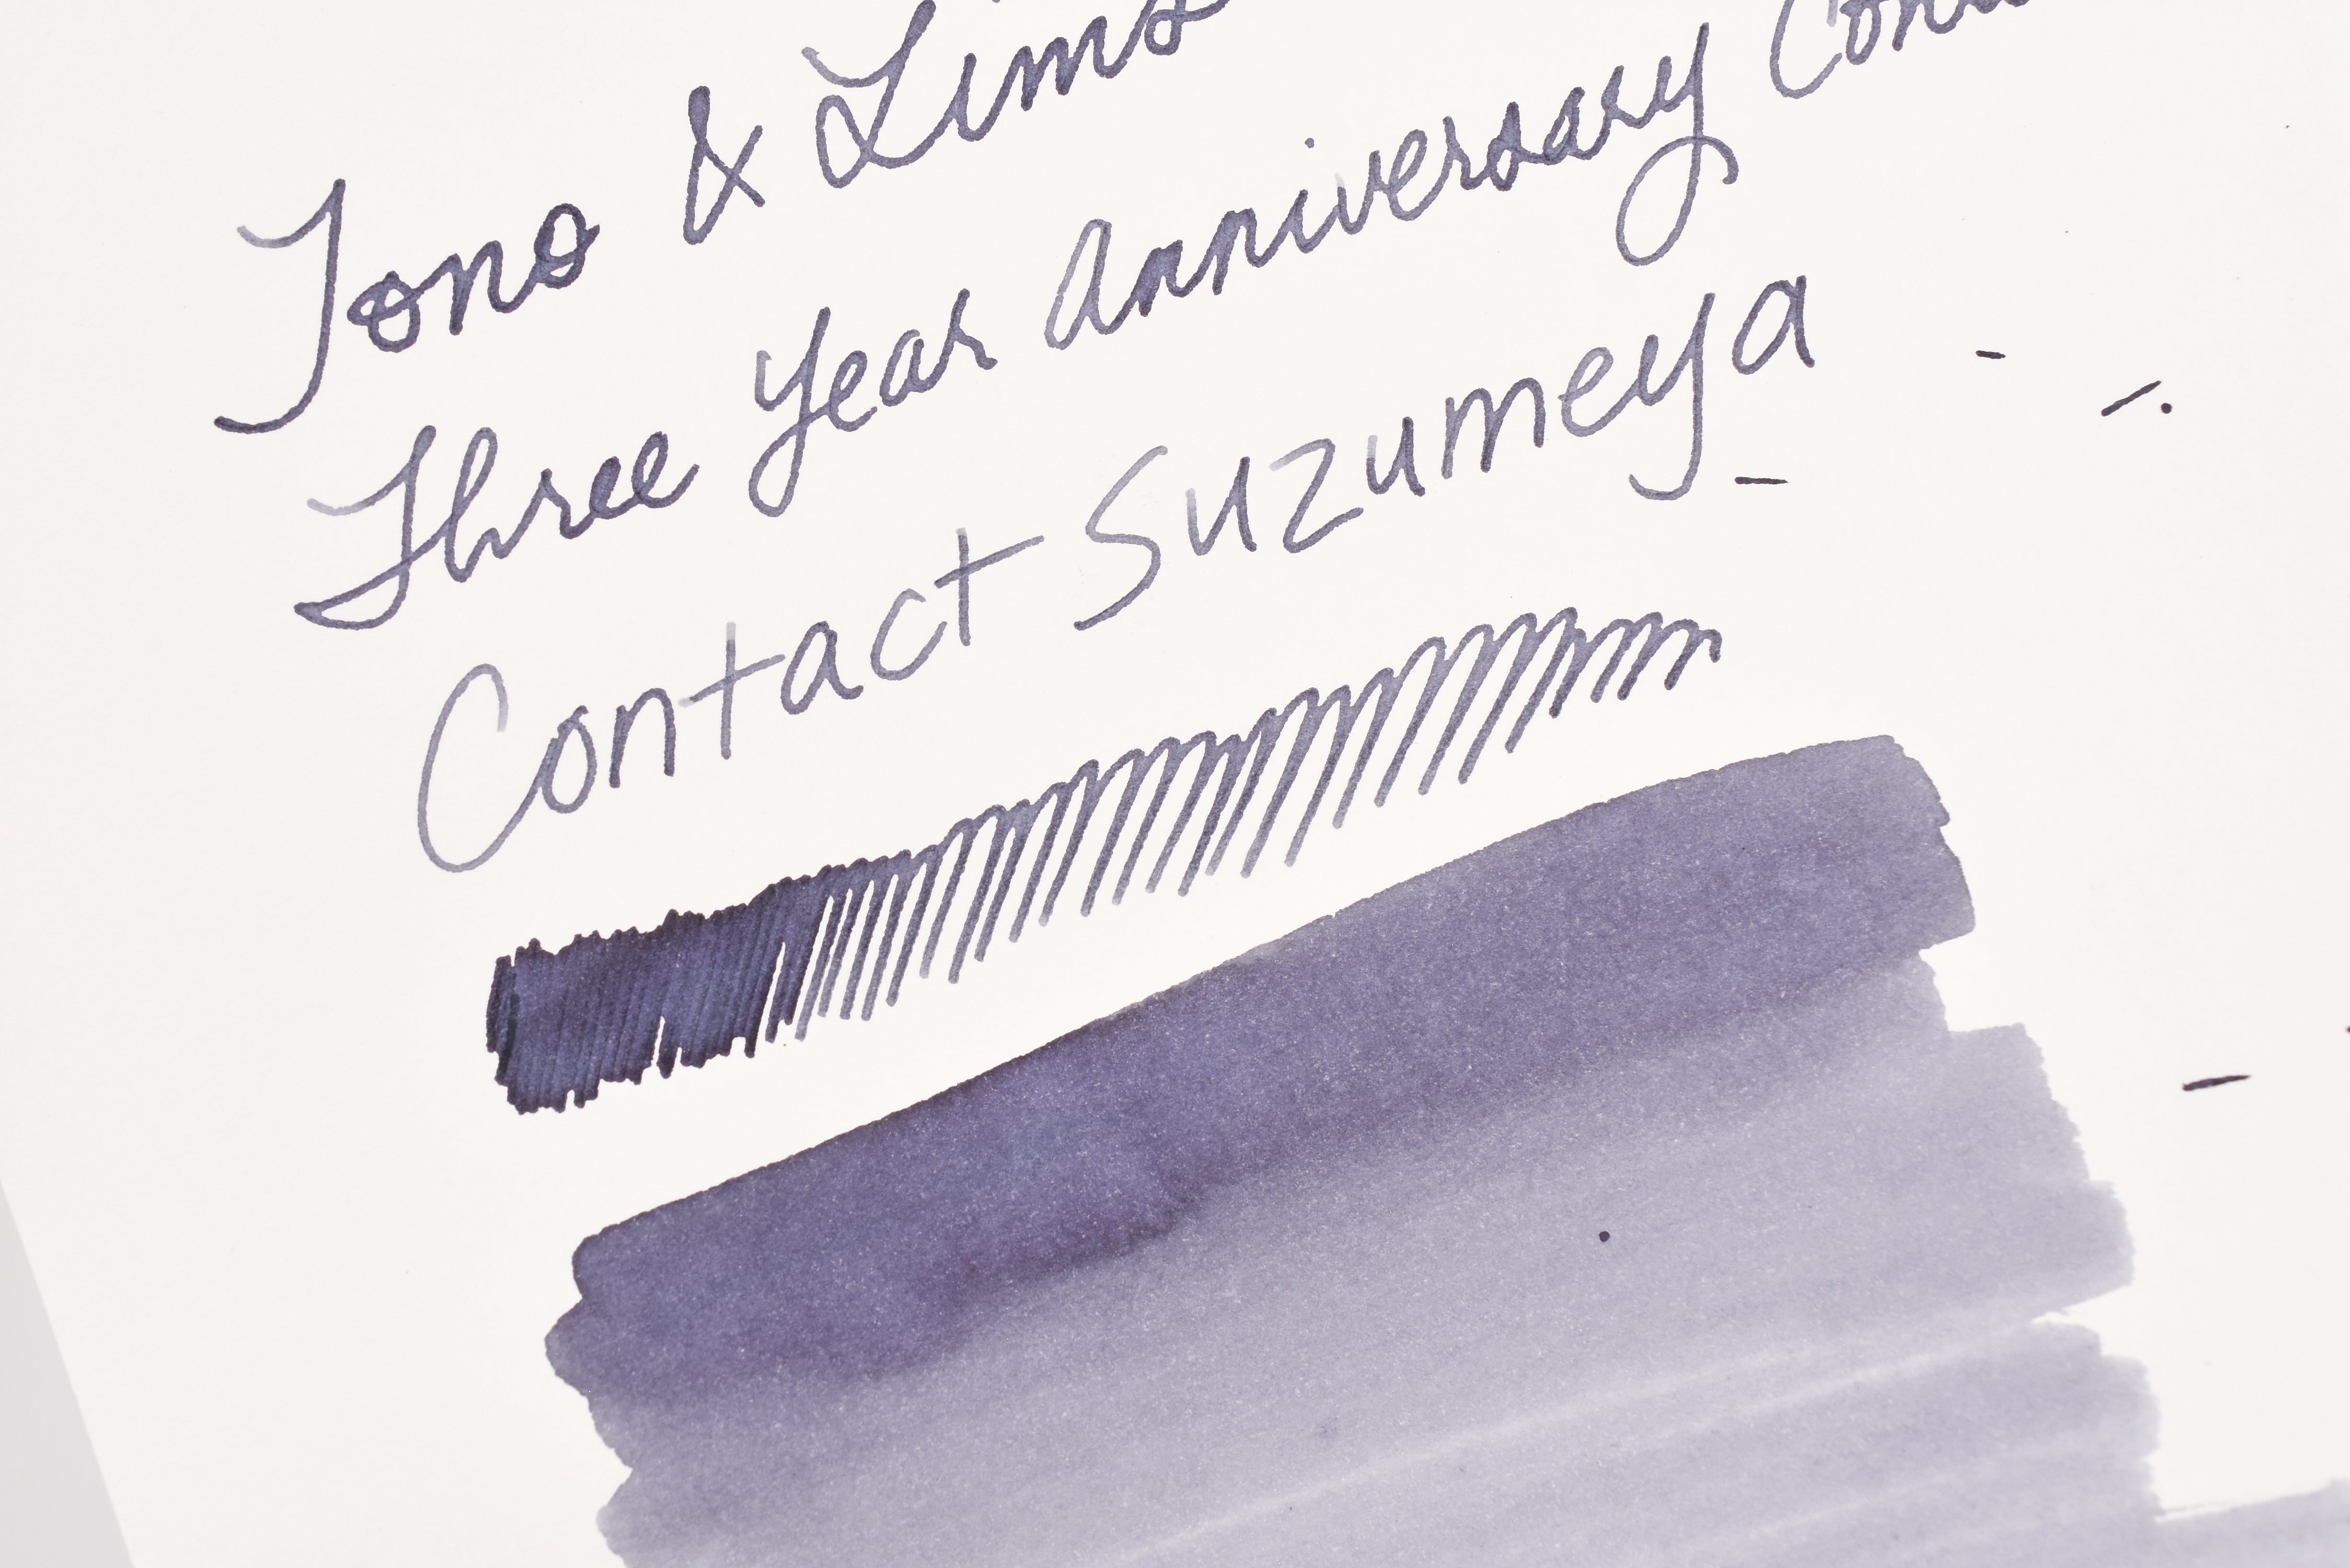 Tono & Lims
Three Year Anniversary
Contact Suzumeya